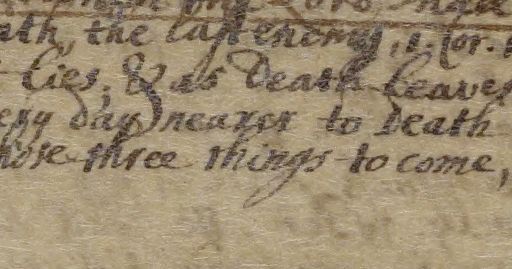 ath, the last enemy, 1. Cor.
lies, & as Death leaves
ery day nearer to Death
hose three things to come,